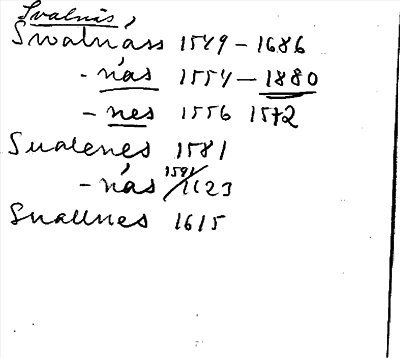 Svalnäs
Swalnäss 1549 - 1686
- näs 1554 - 1880
- nes 1556 1572
Sualenes 1581
- näs 1591/1623
Suallnes 1615